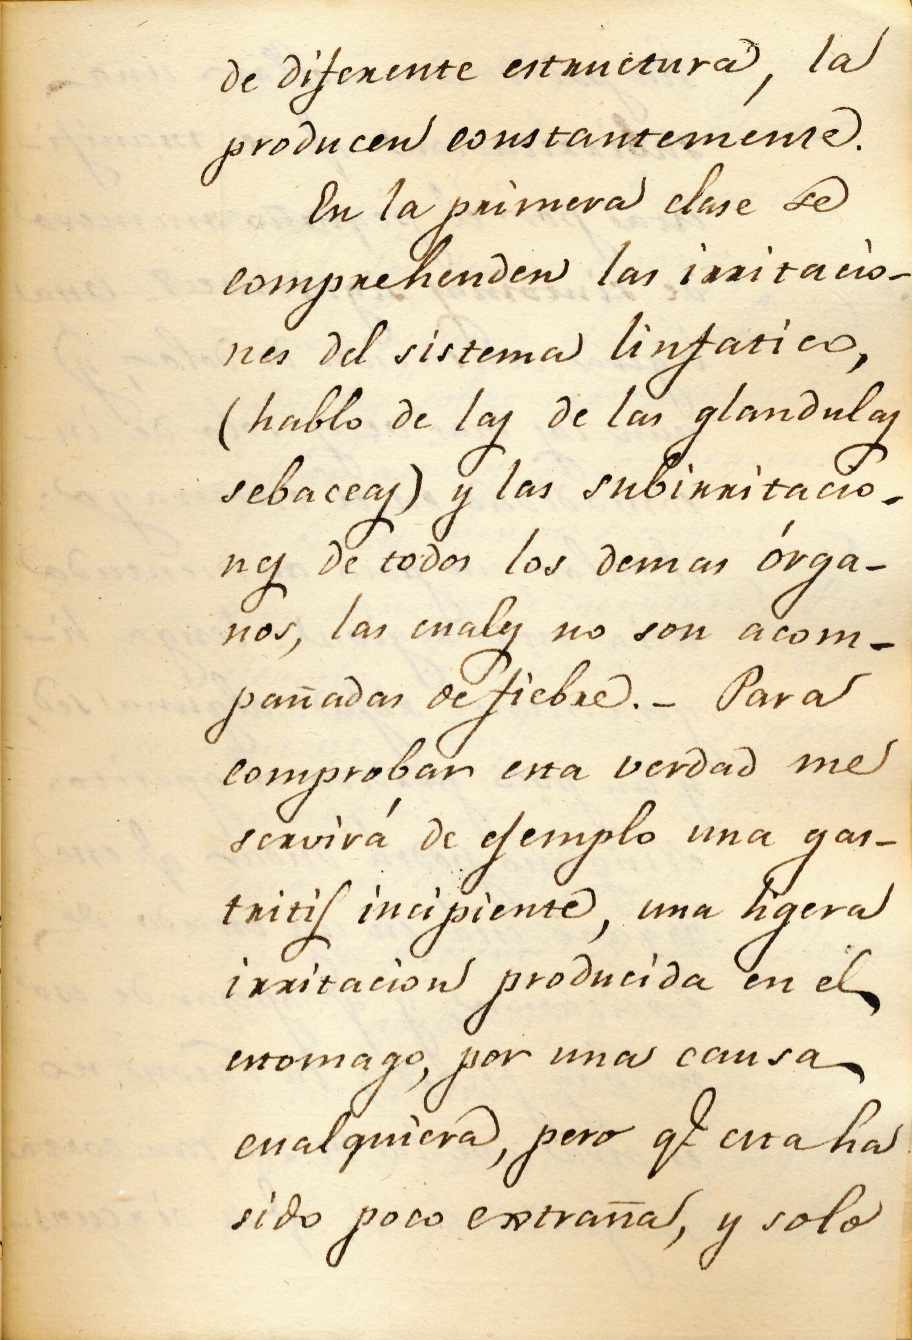 de diferente estructura, la
producen constantemente.
En la primera clase se
comprehenden las irritacio-
nes del sistema linfatico,
(hablo de las de las glandulas
sebaceas) y las subirritacio-
nes de todos los demas órga-
nos, las cuales no son acom-
pañadas de fiebre.- Para
comprobar esta verdad me
servirá de ejemplo una gas-
tritis incipiente, una ligera
irritacion producida en el
estomago, por una causa
cualquiera, pero q.e esta ha
sido poco extraña, y solo